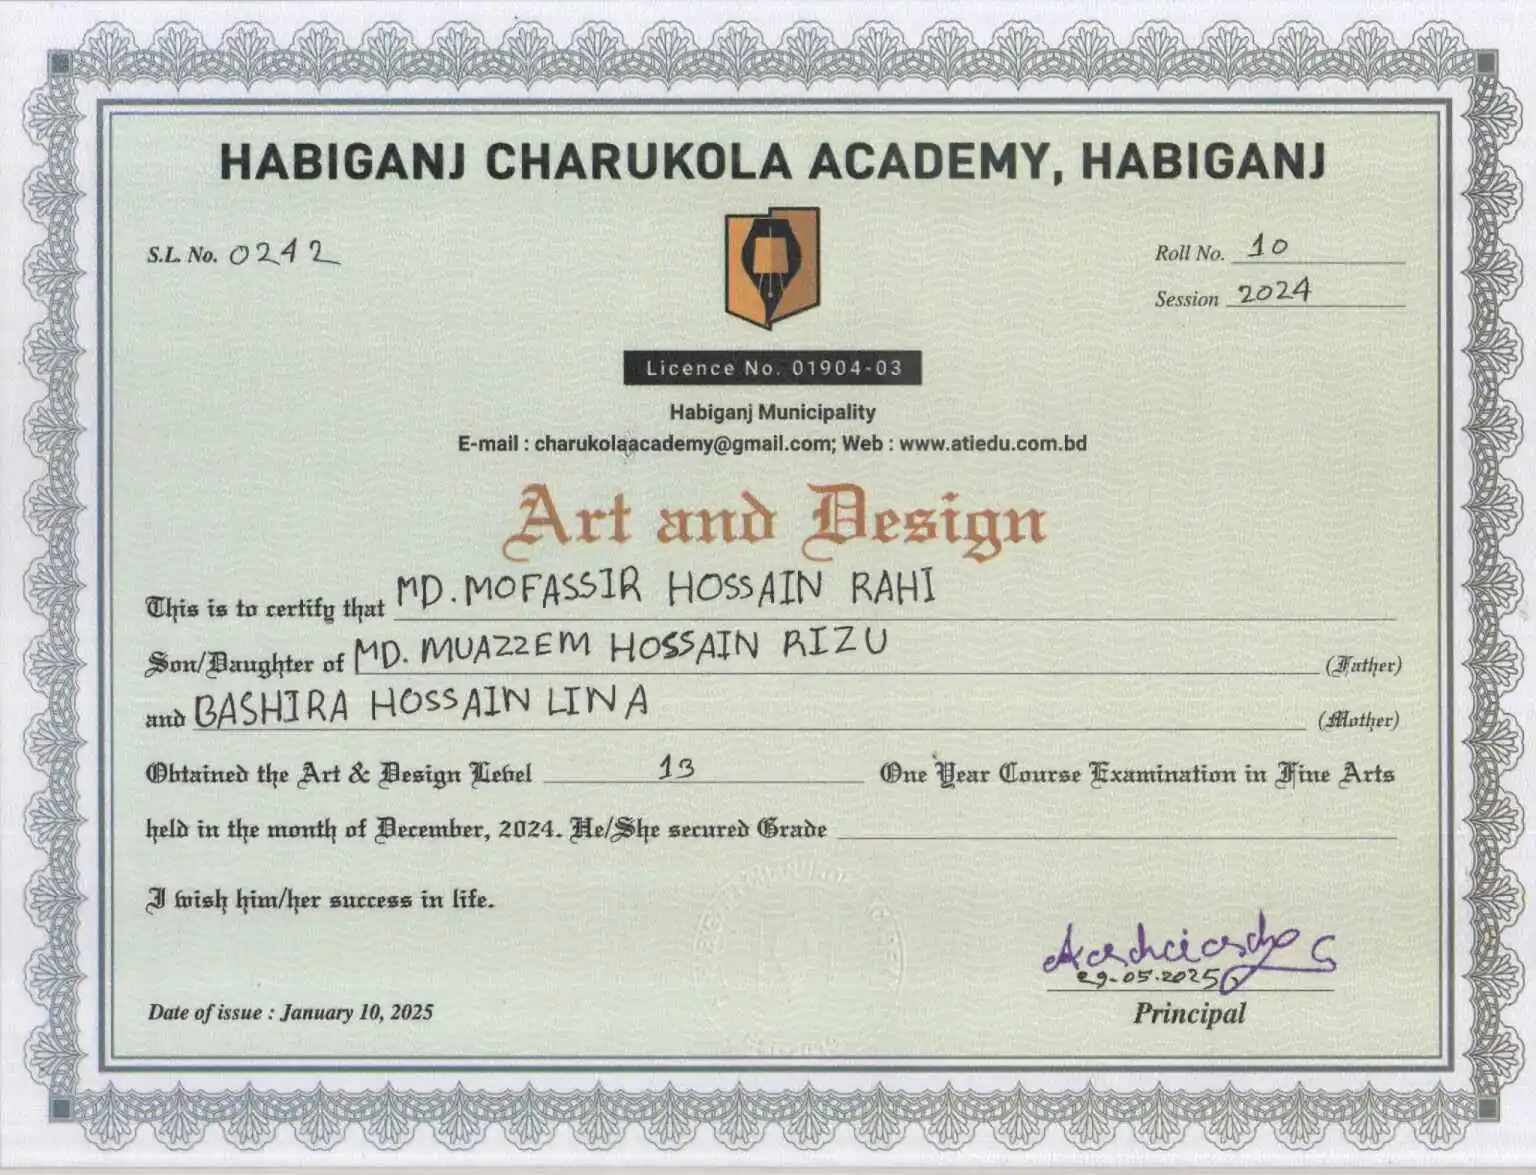 HABIGANJ CHARUKOLA ACADEMY, HABIGANJ
S.L. No. 0242
Roll No. 10
Session 2024
Licence No. 01904-03
Habiganj Municipality
E-mail : charukolaacademy@gmail.com; Web : www.atiedu.com.bd
Art and Design
This is to certify that MD. MOFASSIR HOSSAIN RAHI
Son/Daughter of MD. MUAZZEM HOSSAIN RIZU (Father)
and BASHIRA HOSSAIN LINA (Mother)
Obtained the Art & Design Level 13 One Year Course Examination in Fine Arts
held in the month of December, 2024. He/She secured Grade
I wish him/her success in life.
29-05-2025
Date of issue : January 10, 2025
Principal